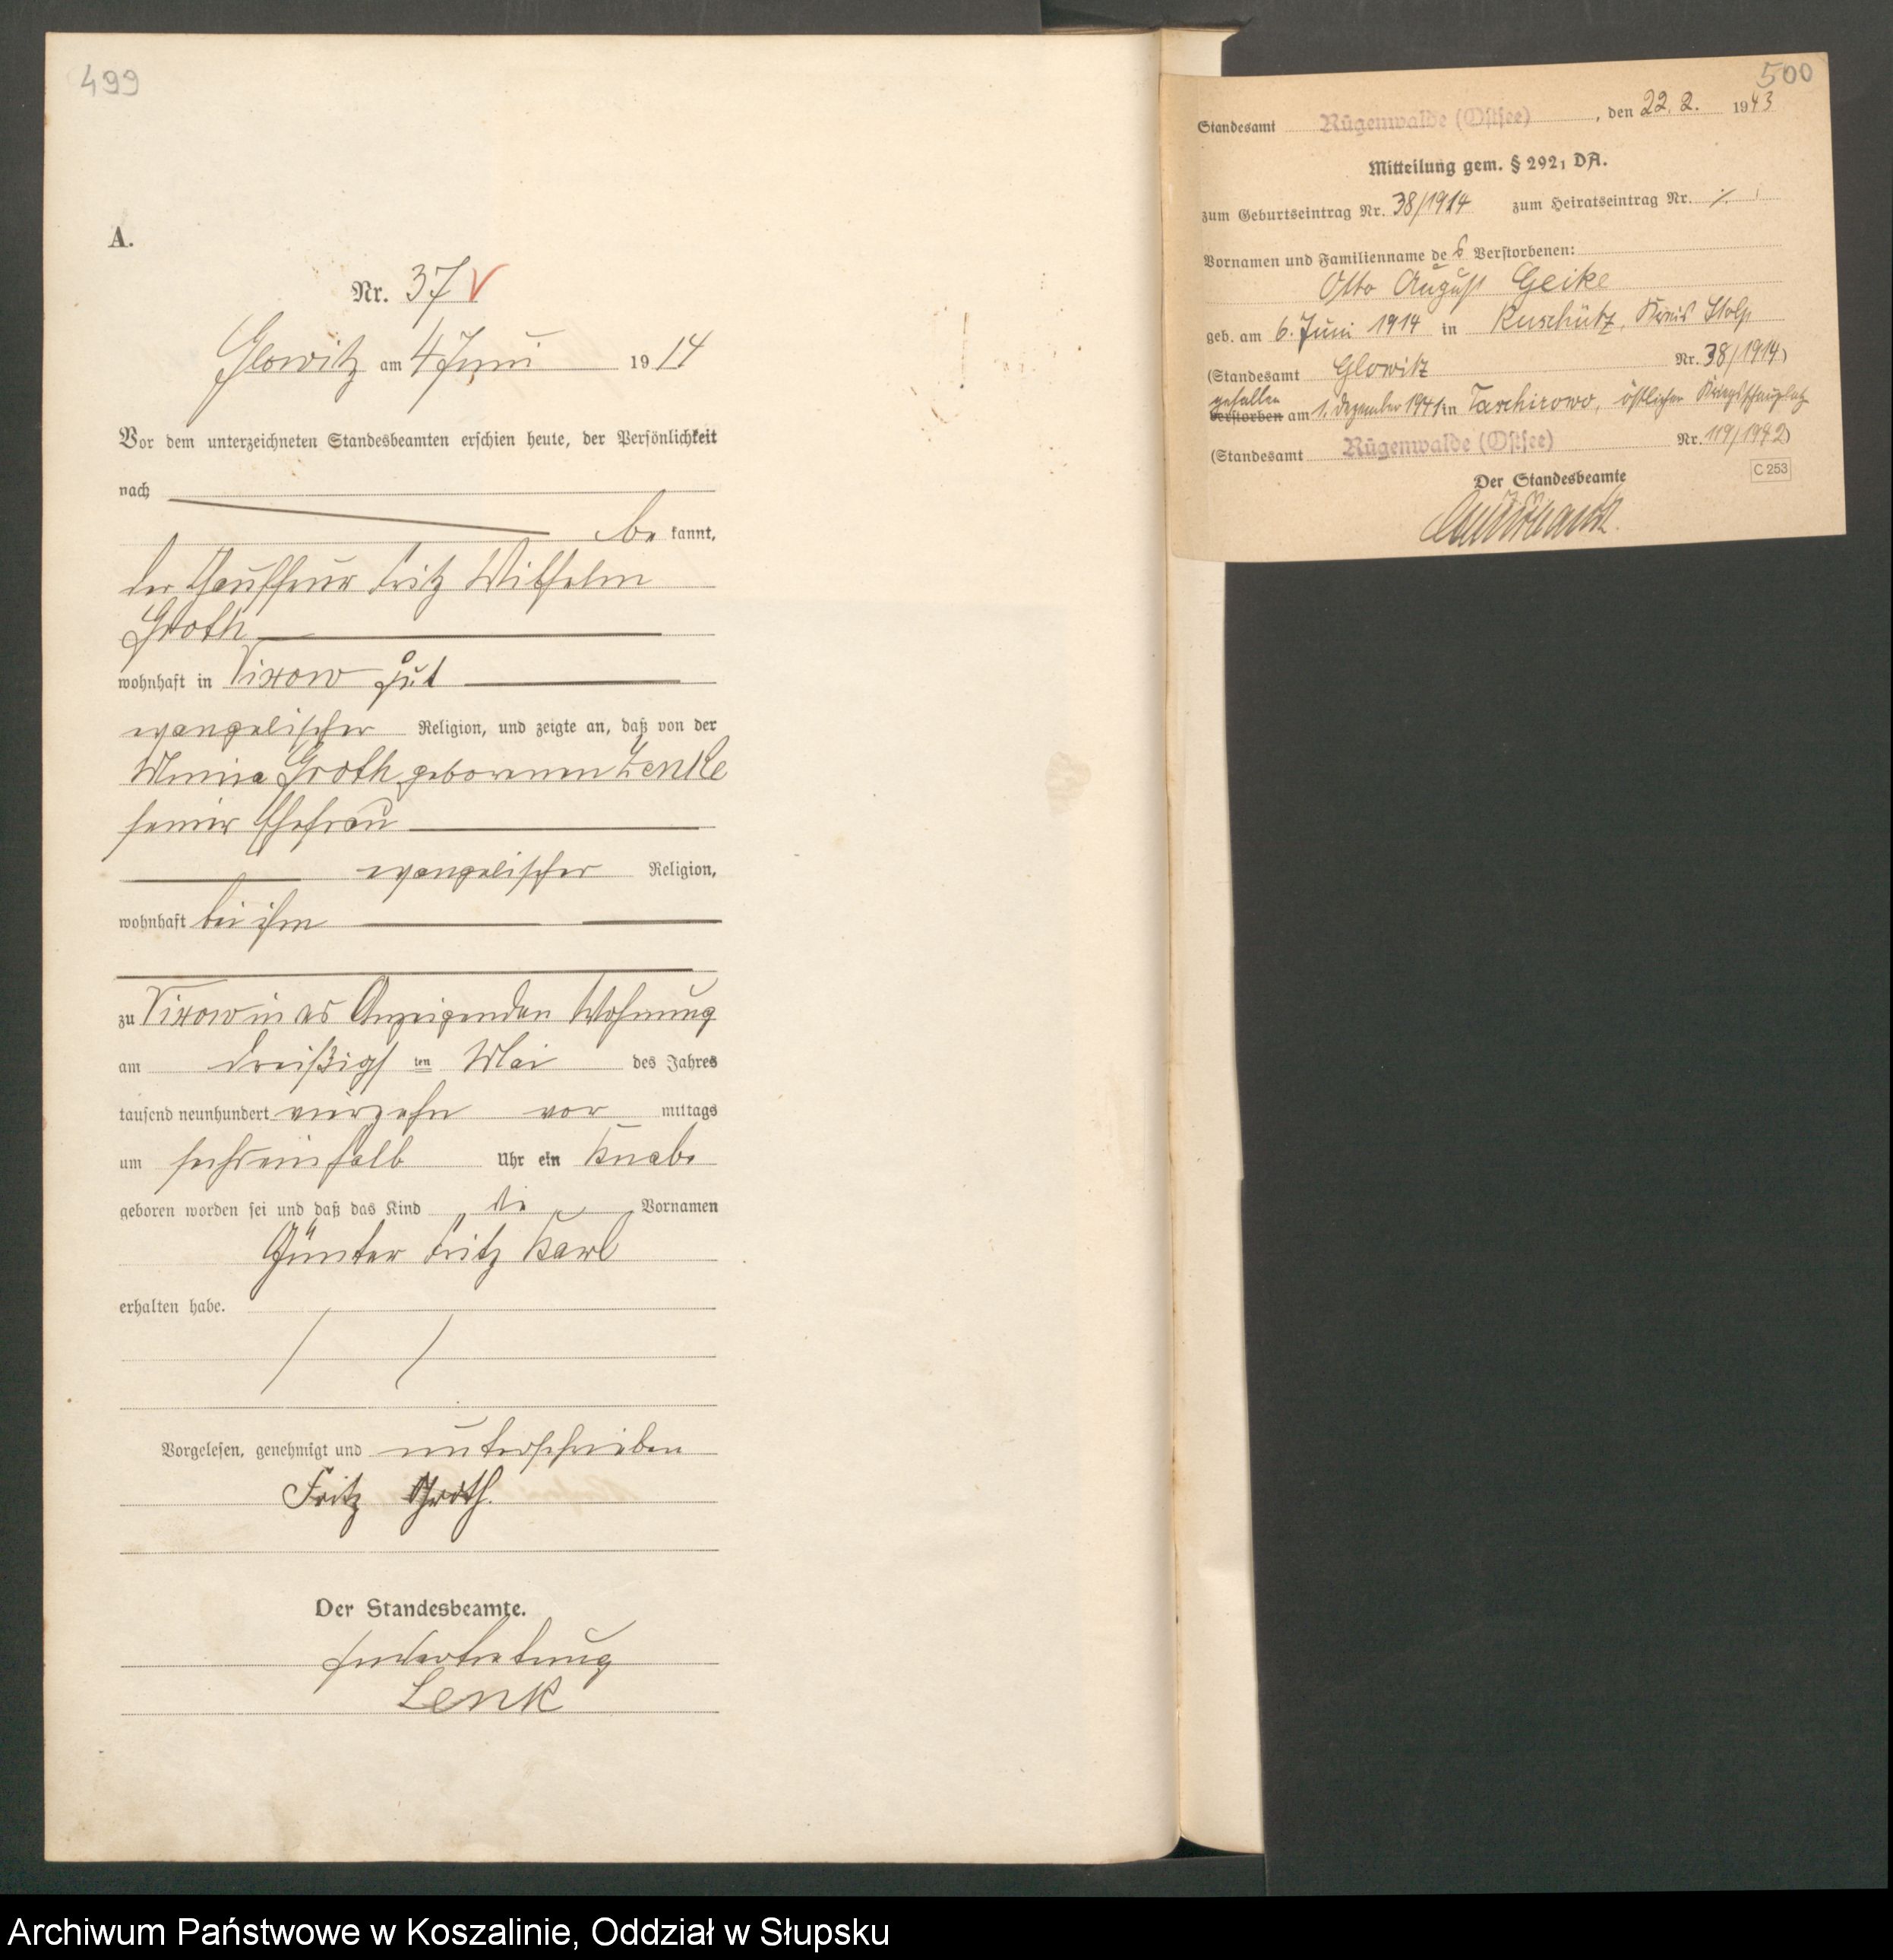 499
A.
Nr. 37
Glowitz am 4 Juni 1914
Vor dem unterzeichneten Standesbeamten erschien heute, der Persönlichkeit
nach
be kannt,
der Chauffeur Fritz Wilhelm
Groth
wohnhaft in Vixow Gut
evangelischer Religion, und zeigte an, daß von der
Groth geborenen Zenke
seiner Ehefrau
evangelischer Religion,
wohnhaft bei ihm
zu Vixow in des Anzeigenden Wohnung
am dreißigs ten Mai des Jahres
tausend neunhundert vierzehn vor mittags
um sechseinhalb Uhr ein Knabe
geboren worden sei und daß das Kind die Vornamen
Günter Fritz Karl
erhalten habe.
Vorgelesen, genehmigt und unterschrieben
Fritz Groth.
Der Standesbeamte.
In Vertretung
Lenk
500
Standesamt Rügenwalde (Ostsee), den 22. 2. 1943
Mitteilung gem. § 292, DA.
zum Geburtseintrag Nr. 38/1914 zum Heiratseintrag Nr. ./.
Vornamen und Familienname des Verstorbenen:
Otto August Geike
geb. am 6. Juni 1914 in Ruschütz, Kreis Stolp
(Standesamt Glowitz Nr. 38/1914)
gefallen
verstorben am 1. Dezember 1941 in Taschirowo, östlicher Kriegsschauplatz
(Standesamt Rügenwalde (Ostsee) Nr. 119/1942)
Der Standesbeamte
C 253
Archiwum Państwowe w Koszalinie, Oddział w Słupsku